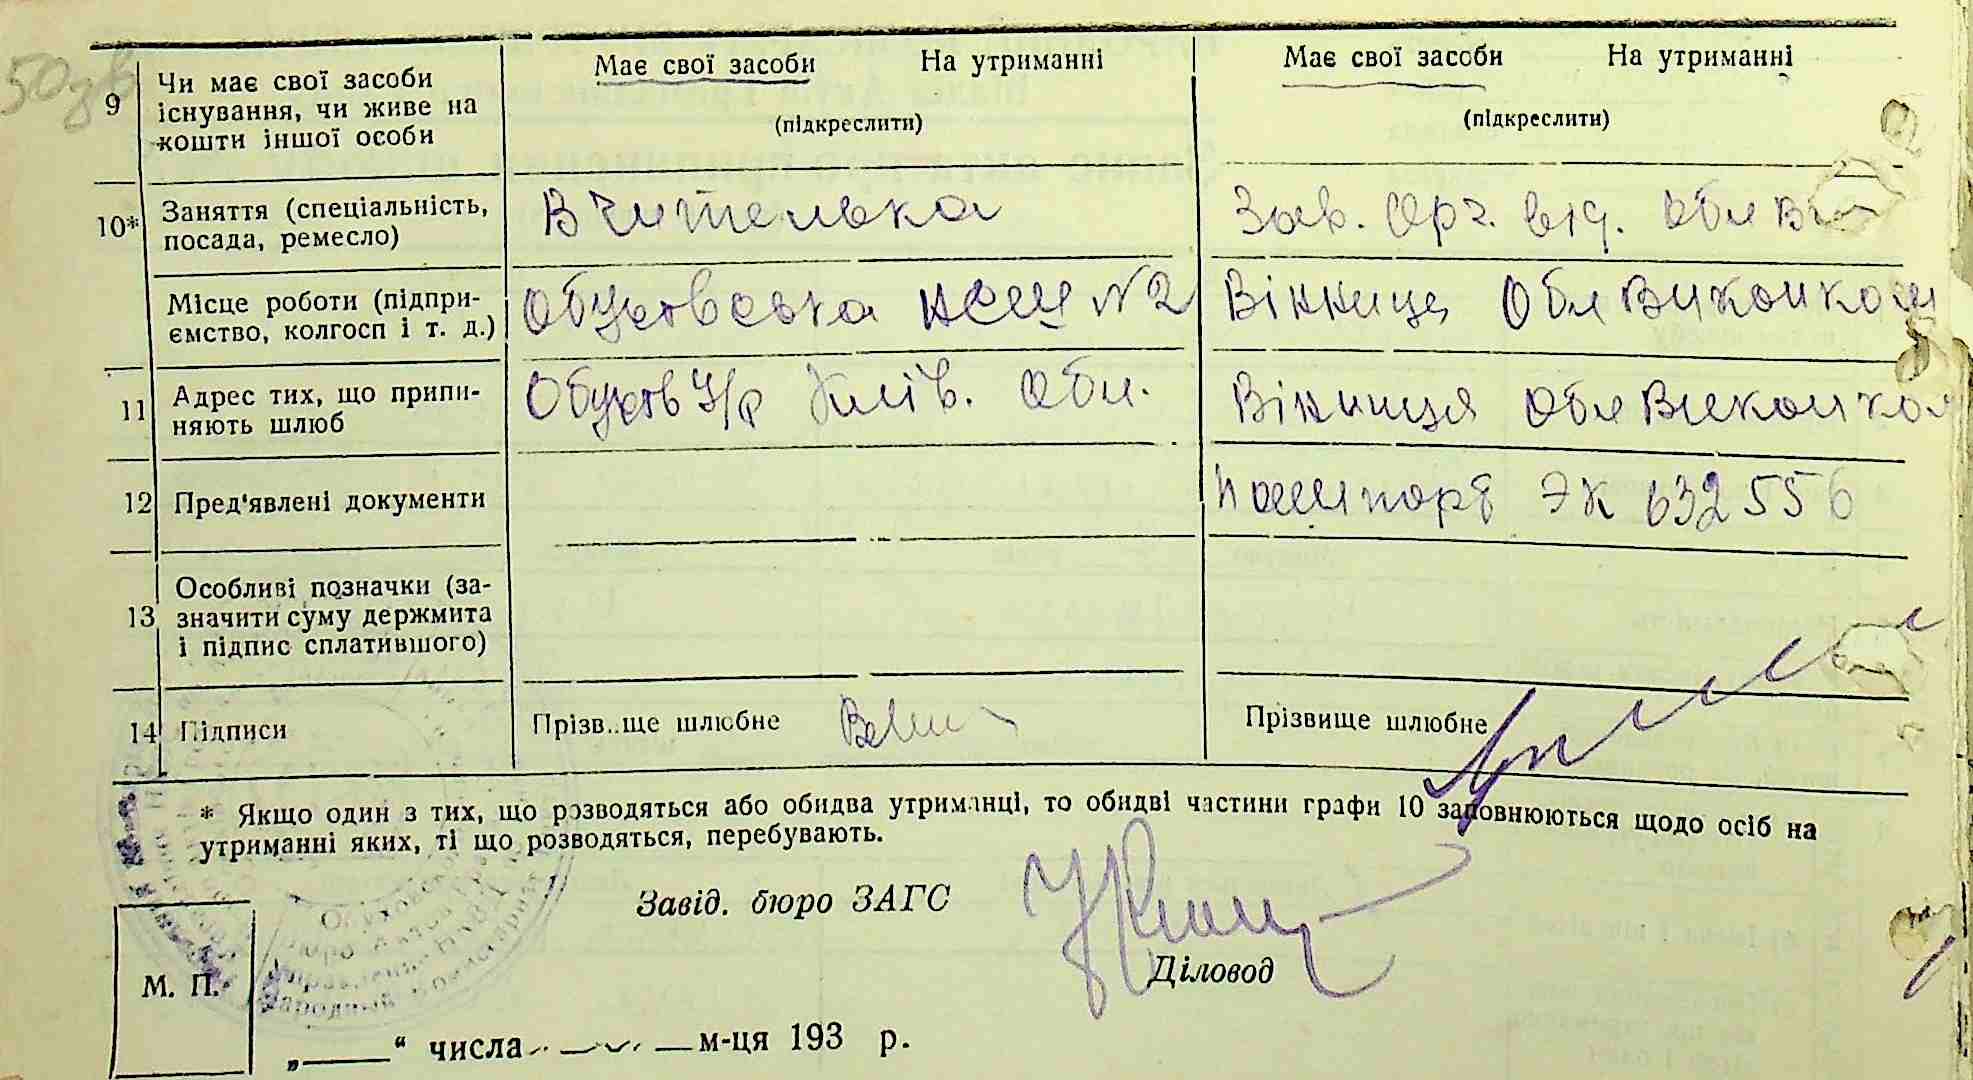 50зв
9 Чи має свої засоби існування, чи живе на кошти іншої особи
Має свої засоби На утриманні
(підкреслити)
Має свої засоби На утриманні
(підкреслити)
10* Заняття (спеціальність, посада, ремесло)
Вчителька
Зав. Орг. від. Облви
Місце роботи (підприємство, колгосп і т. д.)
Обухівська НСШ №2
Вінниця ОблВиконком
11 Адрес тих, що припиняють шлюб
Обухів Київ. Обл.
Вінниця ОблВиконком
12 Пред'явлені документи
Пашпорт ЭК 632556
13 Особливі позначки (зазначити суму держмита і підпис сплатившого)
14 Підписи
Прізвище шлюбне
Прізвище шлюбне
* Якщо один з тих, що розводяться або обидва утриманці, то обидві частини графи 10 заповнюються щодо осіб на
утриманні яких, ті що розводяться, перебувають.
Завід. бюро ЗАГС
Діловод
М. П.
„____“ числа м-ця 193 р.